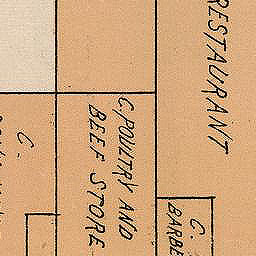 RESTAURANT
C. POULTRY AND
BEEF STORE
C.
C.